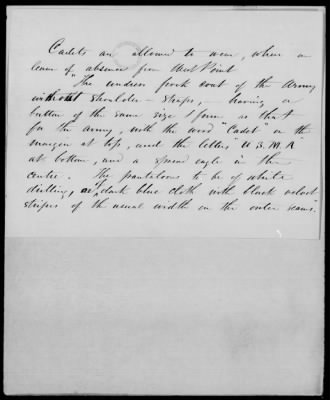 Cadets are allowed to wear, when on
leave of absence from West Point
"The undress frock coat of the Army
without shoulder-straps, - having a
button of the same size & form as that
for the Army, with the word "Cadet" on the
margin at top, and the letters "U. S. M. A"
at bottom, and a spread eagle in the
centre. The pantaloons to be of white
drilling, or of dark blue cloth with black velvet
stripes of the usual width on the outer seams".